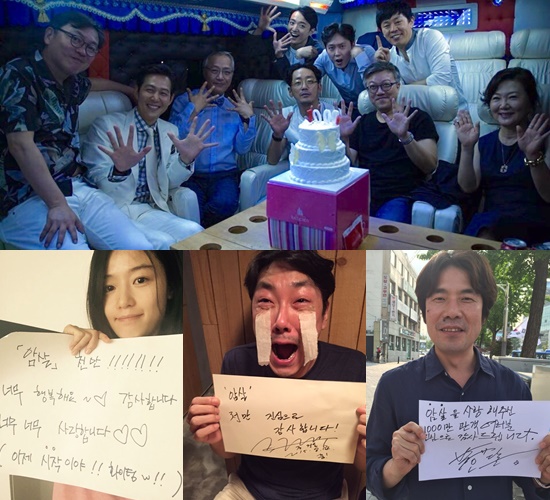 「암살」 천만 !!!!!!!
너무 행복해요~♡ 감사합니다
너무 너무 사랑합니다 ♡♡
( 이제 시작이야 !! 화이팅 w !! )
'암살'
천만 진심으로
감사합니다!
암살을 사랑해주신
1000만 관객 여러분
진심으로 감사드립니다.